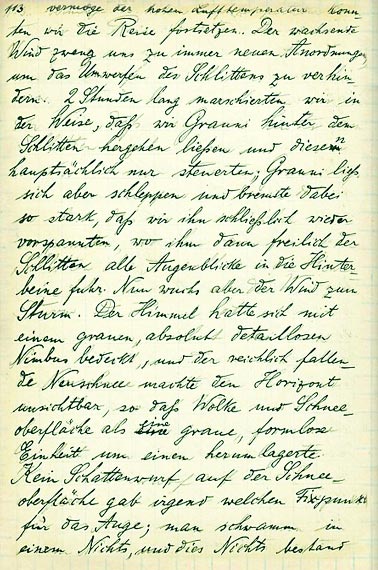 113 vermöge der hohen Lufttemperatur konn-
ten wir die Reise fortsetzen. Der wachsende
Wind zwang uns zu immer neuen Anordnungen,
um das Umwerfen des Schlittens zu verhin
dern. 2 Stunden lang marschierten wir in
der Weise, daß wir Grauni hinter dem
Schlitten hergehen ließen und diesen
hauptsächlich nur steuerten; Grauni ließ
sich aber schleppen und bremste dabei
so stark, daß wir ihn schließlich wieder
vorspannten, wo ihm dann freilich der
Schlitten alle Augenblicke in die Hinter-
beine fuhr. Nun wuchs aber der Wind zum
Sturm. Der Himmel hatte sich mit
einem grauen, absolut detaillosen
Nimbus bedeckt, und der reichlich fallen-
de Neuschnee machte den Horizont
unsichtbar, so daß Wolke und Schnee-
oberfläche als eine graue, formlose
Einheit um einen herumlagerte.
Kein Schattenwurf auf der Schnee-
oberfläche gab irgend welchen Fixpunkt
für das Auge; man schwamm in
einem Nichts, und dies Nichts bestand